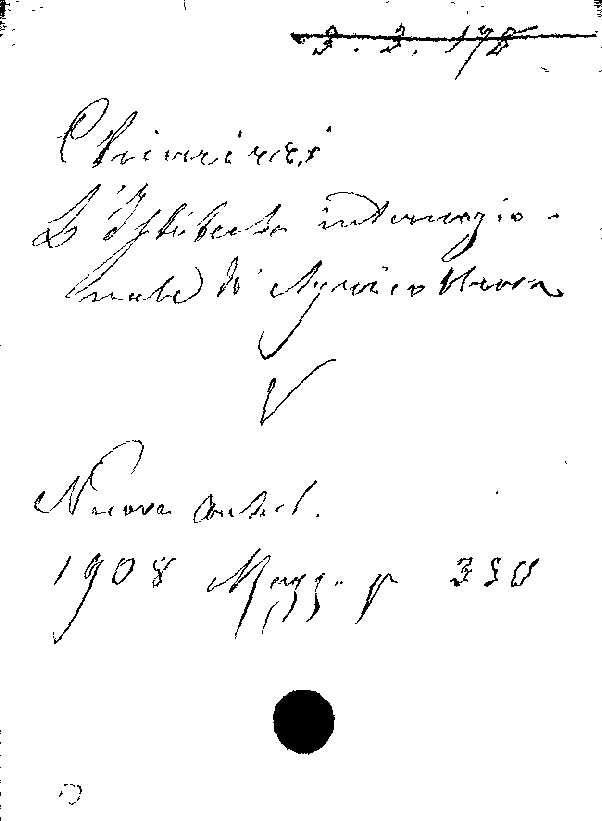 3. 3. 178
Chimirri
L'Istituto internazio-
nale di Agricoltura
V
Nuova antol.
1908 Magg. p